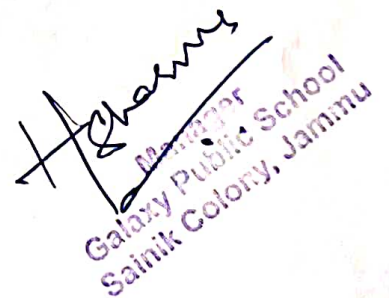 HSharma
Manager
Galaxy Public School
Sainik Colony, Jammu